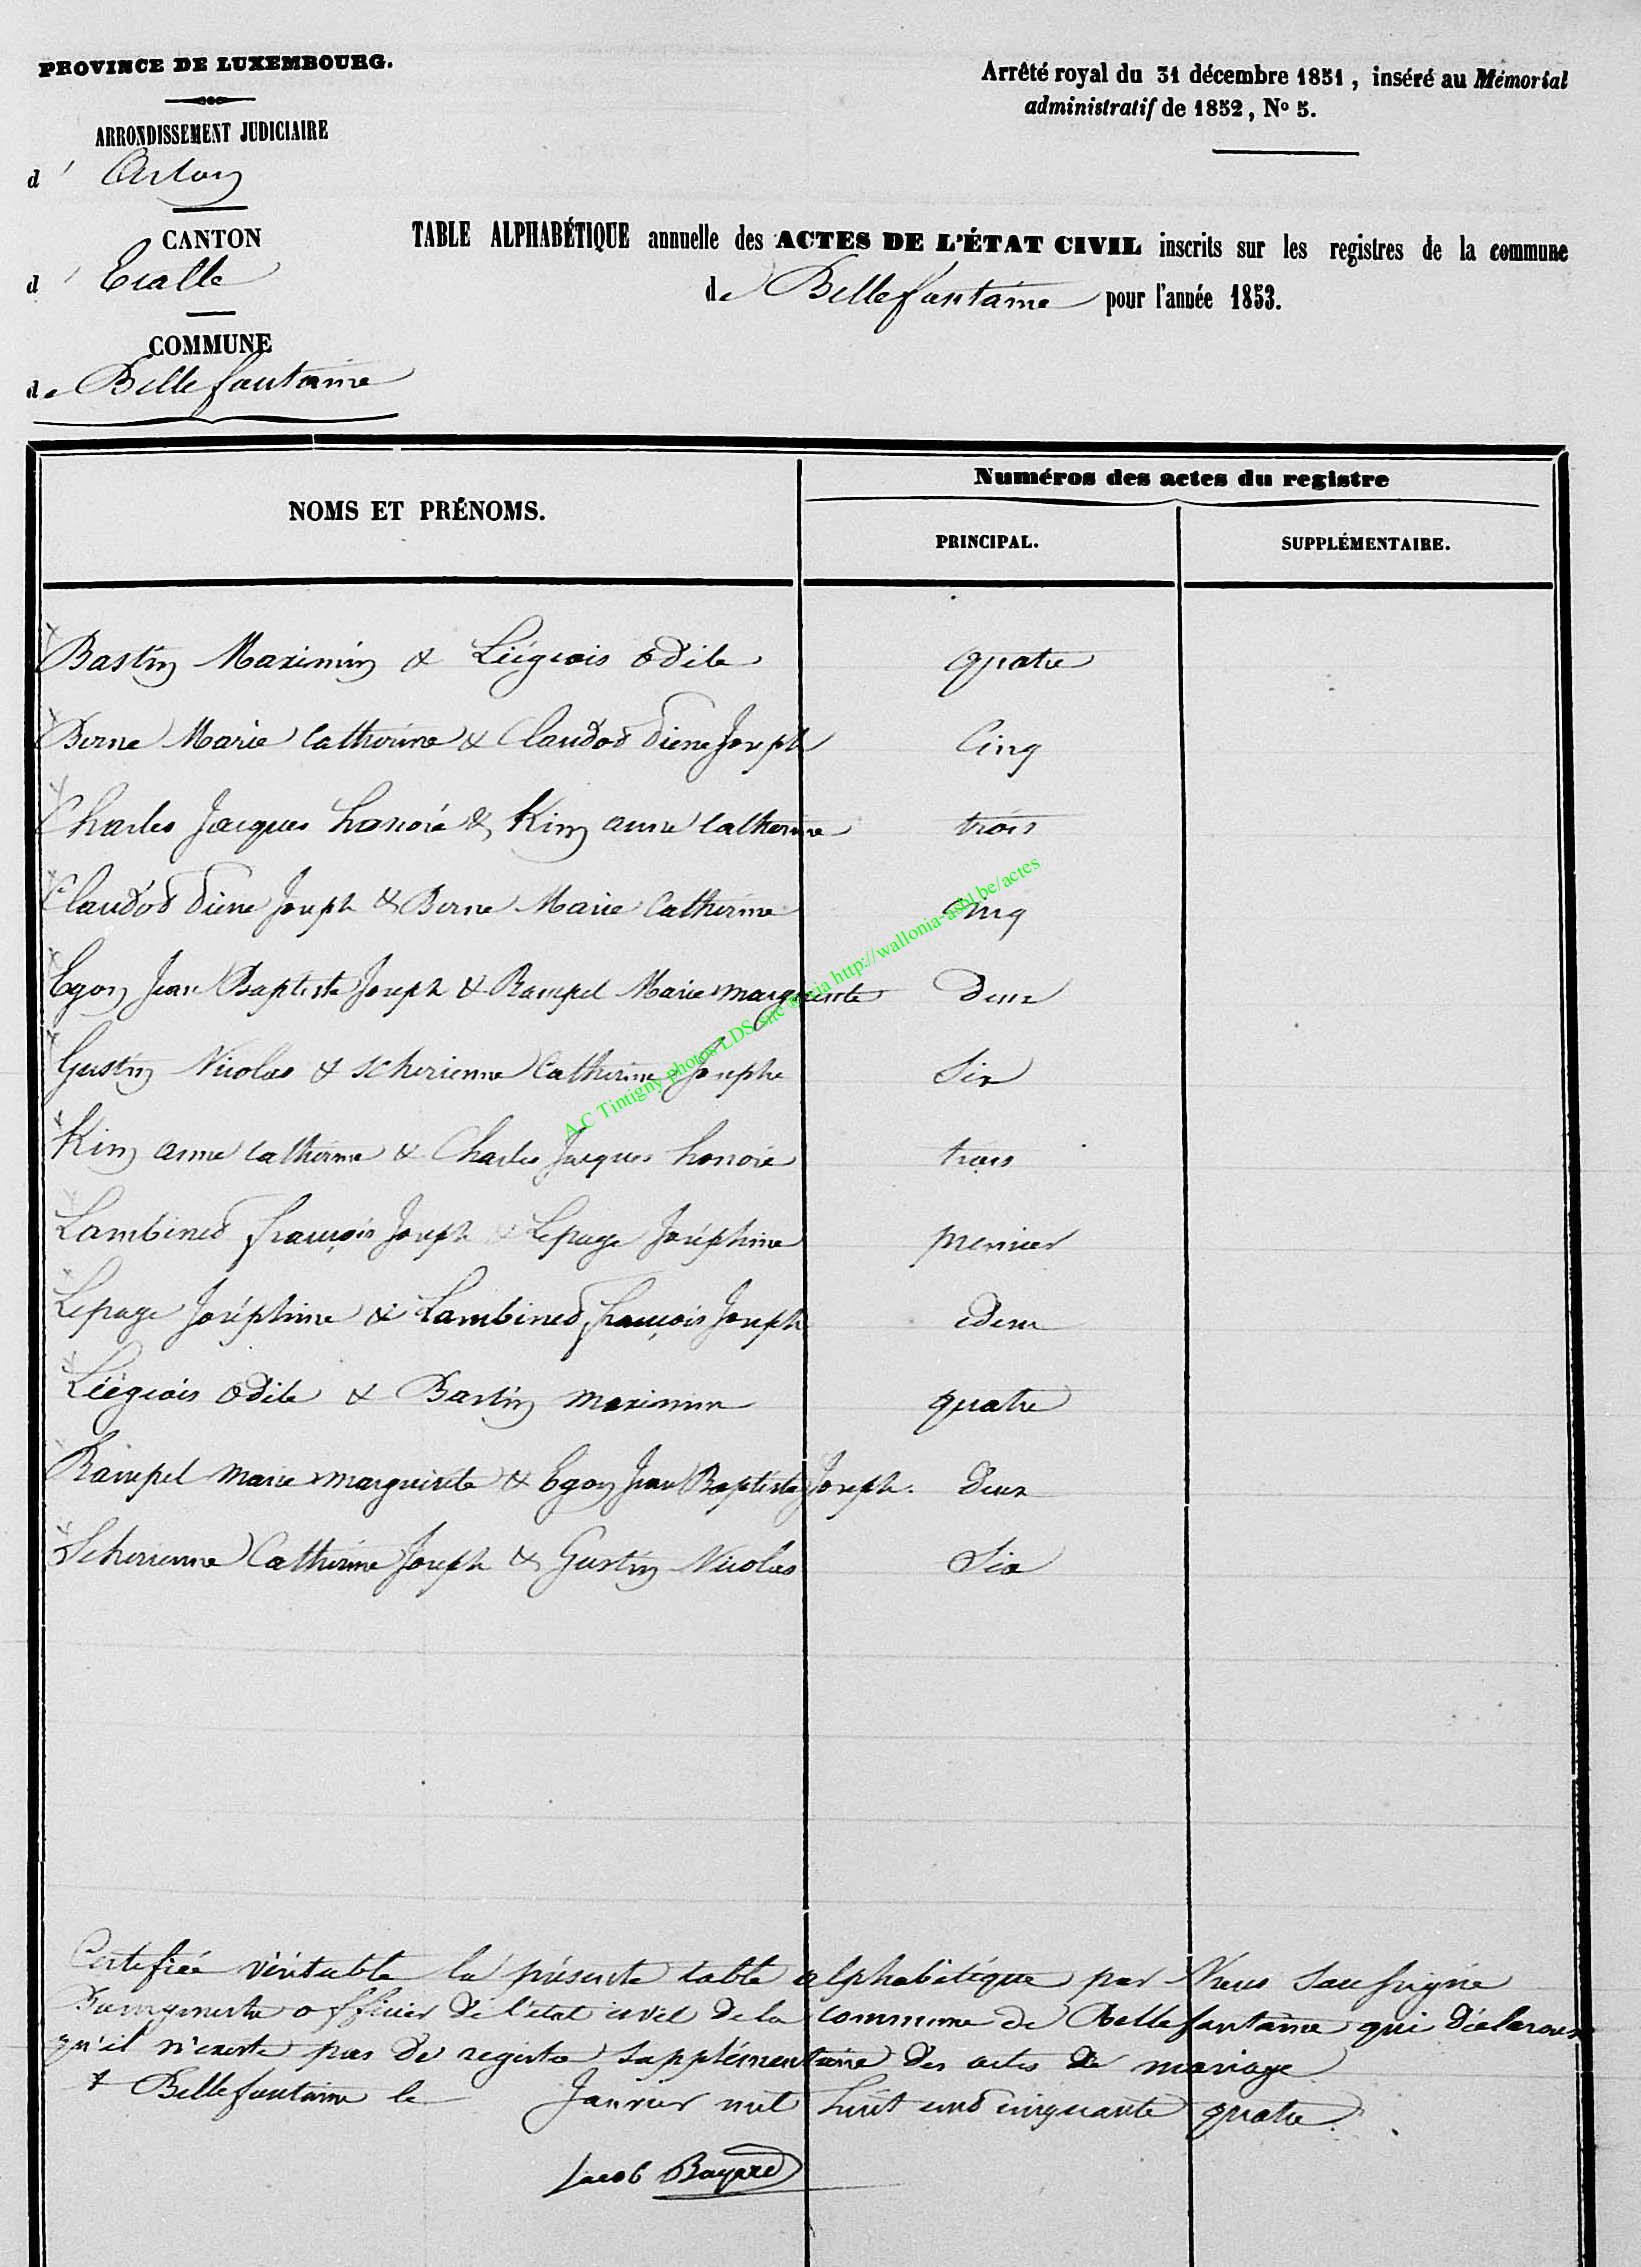 PROVINCE DE LUXEMBOURG.
Arrêté royal du 31 décembre 1851, inséré au Mémorial
administratif de 1852, No 5.
ARRONDISSEMENT JUDICIAIRE
d' Arlon
CANTON
d' Etalle
TABLE ALPHABÉTIQUE annuelle des ACTES DE L'ÉTAT CIVIL inscrits sur les registres de la commune
de Bellefontaine pour l'année 1853.
COMMUNE
de Bellefontaine
NOMS ET PRÉNOMS.
Numéros des actes du registre
PRINCIPAL.
SUPPLÉMENTAIRE.
Bastin Maximin & Liégeois Odile quatre
Berne Marie Catherine & Claudot Joseph Cinq
Charles Jacques honoré & Kin anne Catherine trois
Claudot Joseph & Berne Marie Catherine Cinq
Egon Jean Baptiste Joseph & Rampel Marie marguerite deux
Gustin Nicolas & Scherienne Catherine Josephe Six
Kin anne Catherine & Charles Jacques honoré trois
Lambinet françois Joseph & Lepage Joséphine premier
Lepage Joséphine & Lambinet françois Joseph
Liégeois Odile & Bastin maximin quatre
Rampel Marie marguerite & Egon Jean Baptiste Joseph. deux
Scherienne Catherine Joseph & Gustin Nicolas Six
Certifiée véritable la présente table alphabétique par Nous Soussigné
Bourgmestre officier de l'état civil de la commune de Bellefontaine qui déclarons
qu'il n'existe pas de registre supplémentaire des actes de mariage
à Bellefontaine le Janvier mil huit cent cinquante quatre.
Jacob Bayard
A.C Tintigny photos LDS site via http://wallonia-asbl.be/actes